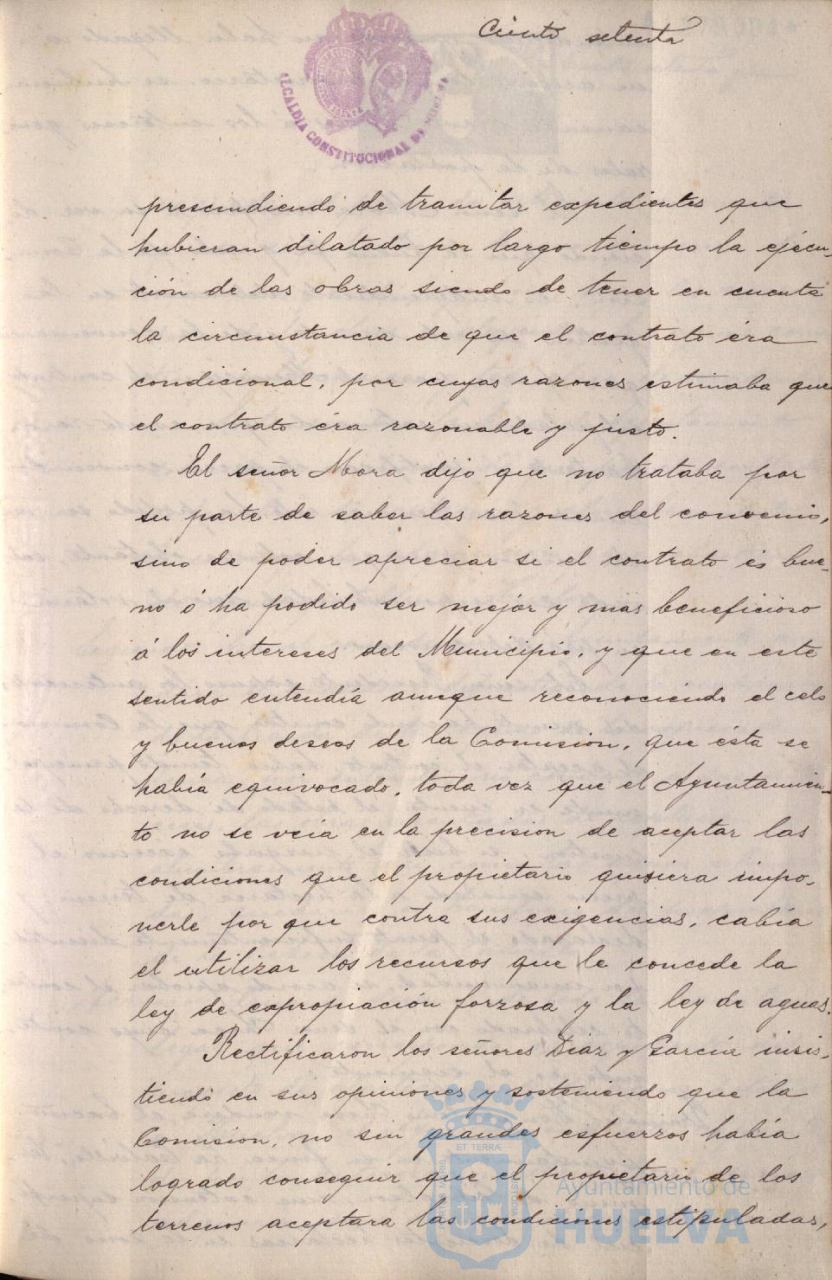 Ciento setenta
ALCALDIA CONSTITUCIONAL DE HUELVA
prescindiendo de tramitar expedientes que
hubieran dilatado por largo tiempo la ejecu-
ción de las obras siendo de tener en cuenta
la circunstancia de que el contrato éra
condicional, por cuyas razones estimaba que
el contrato éra razonable y justo.
El señor Mora dijo que no trataba por
su parte de saber las razones del convenio,
sino de poder apreciar si el contrato és bue-
no ó ha podido ser mejor y mas beneficioso
á los intereses del Municipio, y que en este
sentido entendía aunque reconociendo el celo
y buenos deseos de la Comision, que ésta se
había equivocado, toda vez que el Ayuntamien-
to no se veía en la precision de aceptar las
condiciones que el propietario quisiera impo-
nerle por que contra sus exigencias, cabía
el utilizar los recursos que le concede la
ley de expropiación forzosa y la ley de aguas.
Rectificaron los señores Diaz y García insis-
tiendo en sus opiniones y sosteniendo que la
Comision, no sin grandes esfuerzos había
logrado conseguir que el propietario de los
terrenos aceptara las condiciones estipuladas,
ET TERRÆ
Ayuntamiento de
HUELVA